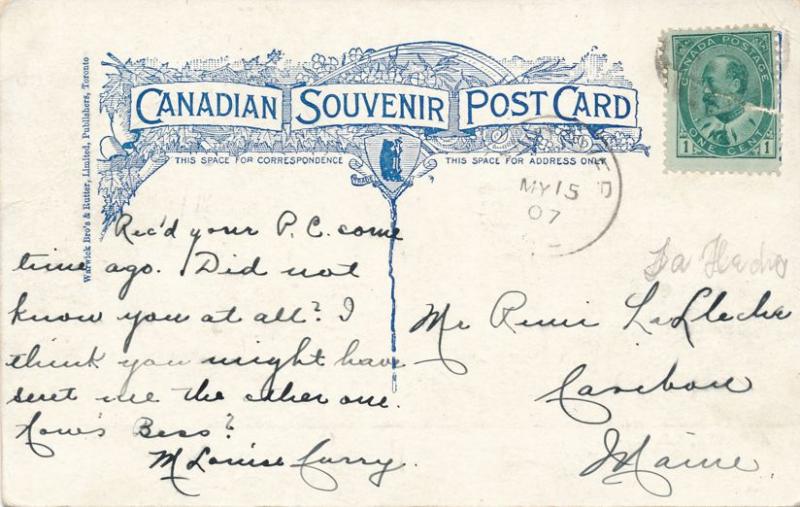 CANADIAN SOUVENIR POST CARD
THIS SPACE FOR CORRESPONDENCE
THIS SPACE FOR ADDRESS ONLY
Warwick Bro's & Rutter, Limited, Publishers, Toronto
CANADA POSTAGE
ONE CENT
1 1
MY 15
07
Rec'd your P.C. some
time ago. Did not
know you at all? I
think you might have
sent me the other one.
How's Bess?
M Louise Curry.
La Fleche
Mr Remi LaFleche
Caribou
Maine